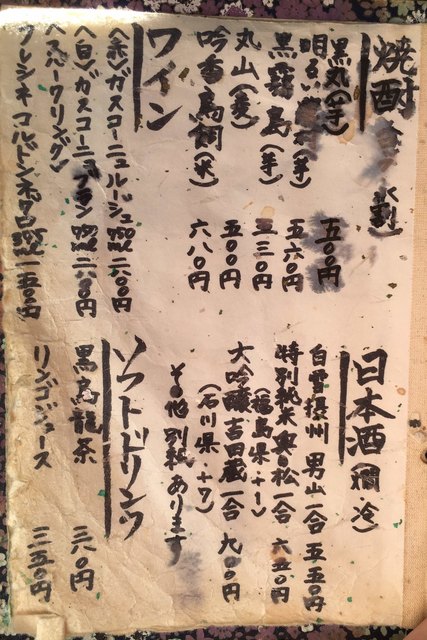 焼酎 水割)
黒丸(芋) 五〇〇円
明るい (芋) 五六〇円
黒霧島(芋) 五三〇円
丸山(麦) 五〇〇円
吟香鳥飼(米) 六八〇円
ワイン
〈赤〉ガスコーニュルージュ 二六〇〇円
〈白〉ガスコーニュブラン 二六〇〇円
〈スパークリング〉
フレシネコルドンネグロ 一五〇〇円
日本酒(燗・冷)
白雪摂州 男山一合 五五〇円
特別純米奥の松一合 六五〇円
(福島県、+1)
大吟醸・吉田蔵一合 九〇〇円
(石川県、+7)
その他別紙あります
ソフトドリンク
黒烏龍茶 三六〇円
リンゴジュース 三五〇円